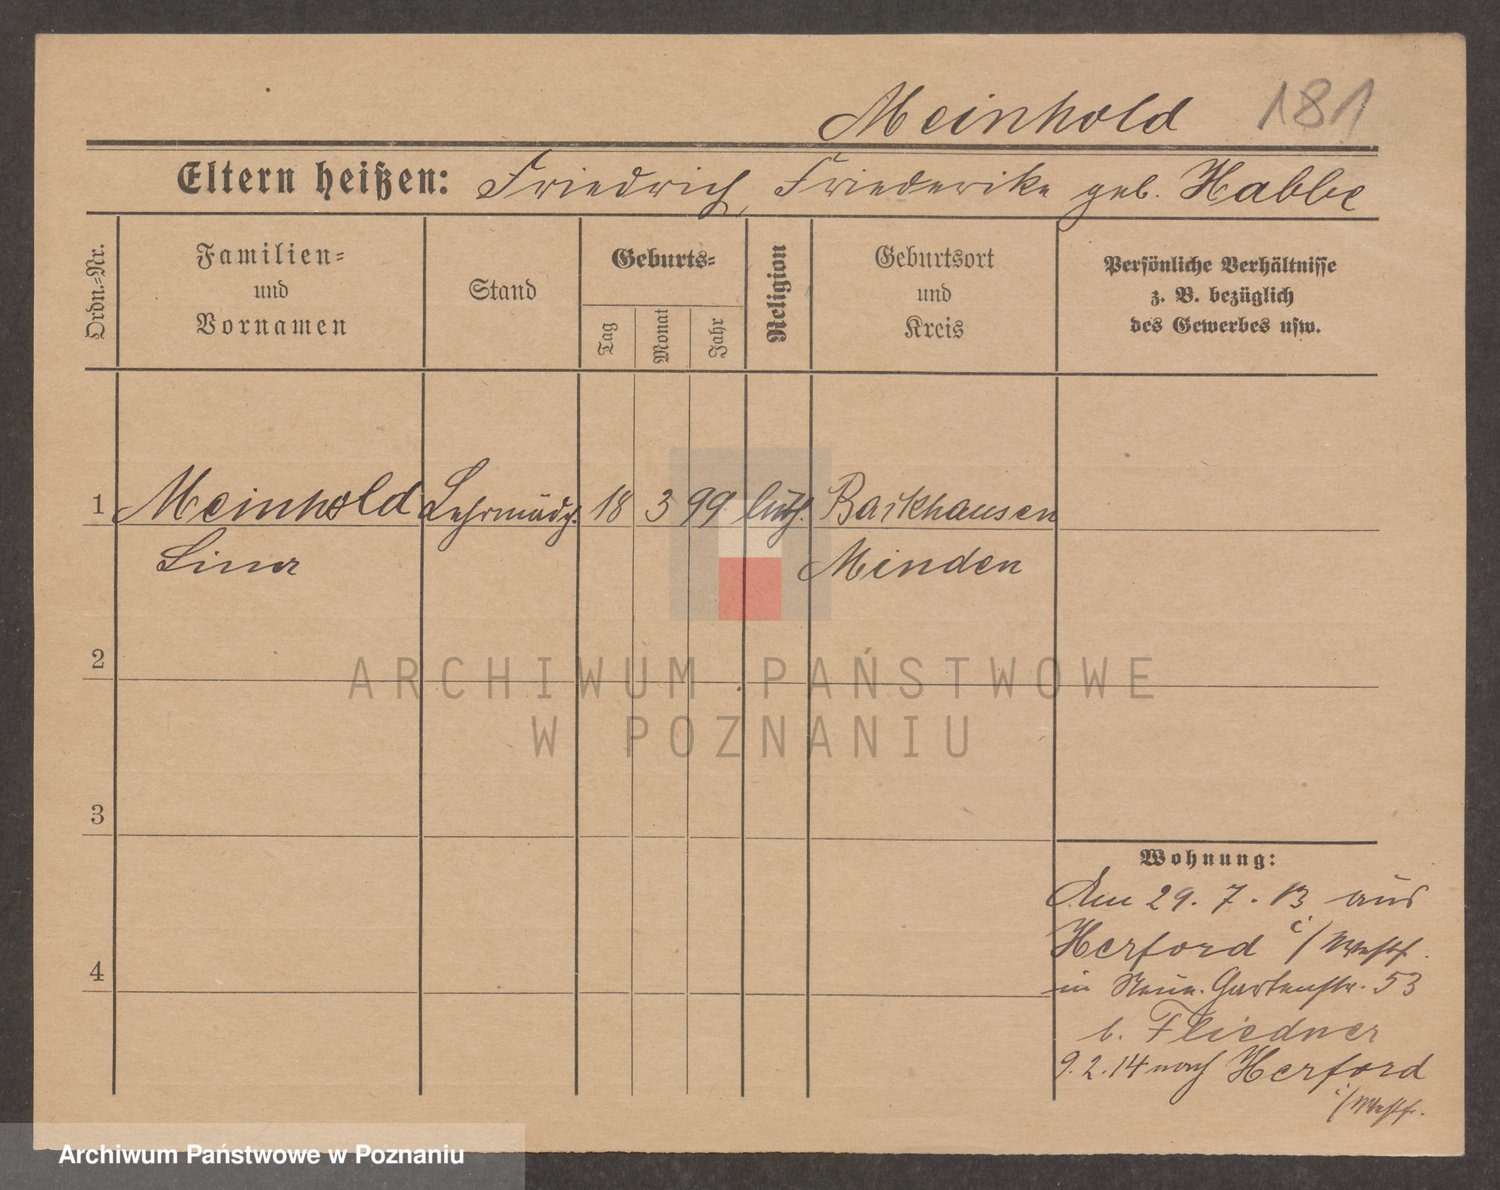 Meinhold 181
Eltern heißen: Friedrich, Friederike geb. Habbe
Ordn.-Nr.
Familien-
und
Vornamen
Stand
Geburts-
Tag
Monat
Jahr
Religion
Geburtsort
und
Kreis
Persönliche Verhältnisse
z. B. bezüglich
des Gewerbes usw.
1 Meinhold Lehrmädch. 18 3 99 luth. Barkhausen
Lina Minden
2
ARCHIWUM PAŃSTWOWE
W POZNANIU
3
Wohnung:
Am 29. 7. 13 aus
Herford i/Westf.
4
in Neue Gartenstr. 53
b. Fliedner
9. 2. 14 nach Herford
i/Westf.
Archiwum Państwowe w Poznaniu